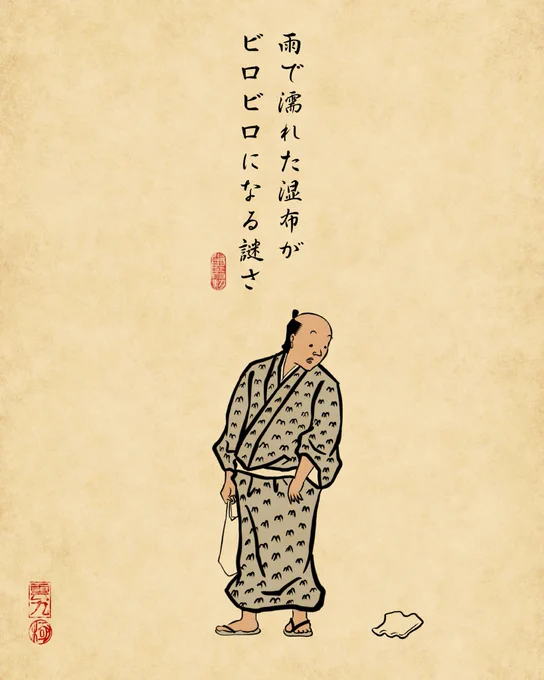 雨で濡れた湿布が
ビロビロになる謎さ